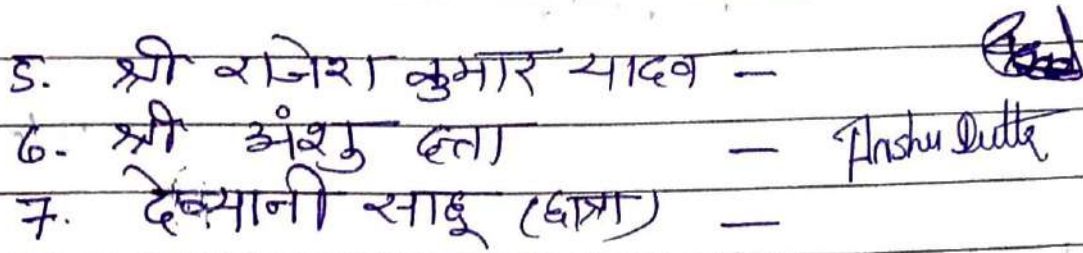 5. श्री राजेश कुमार यादव —
6. श्री अंशु दत्ता — Anshu Dutta
7. देवयानी साहू (छात्रा) —